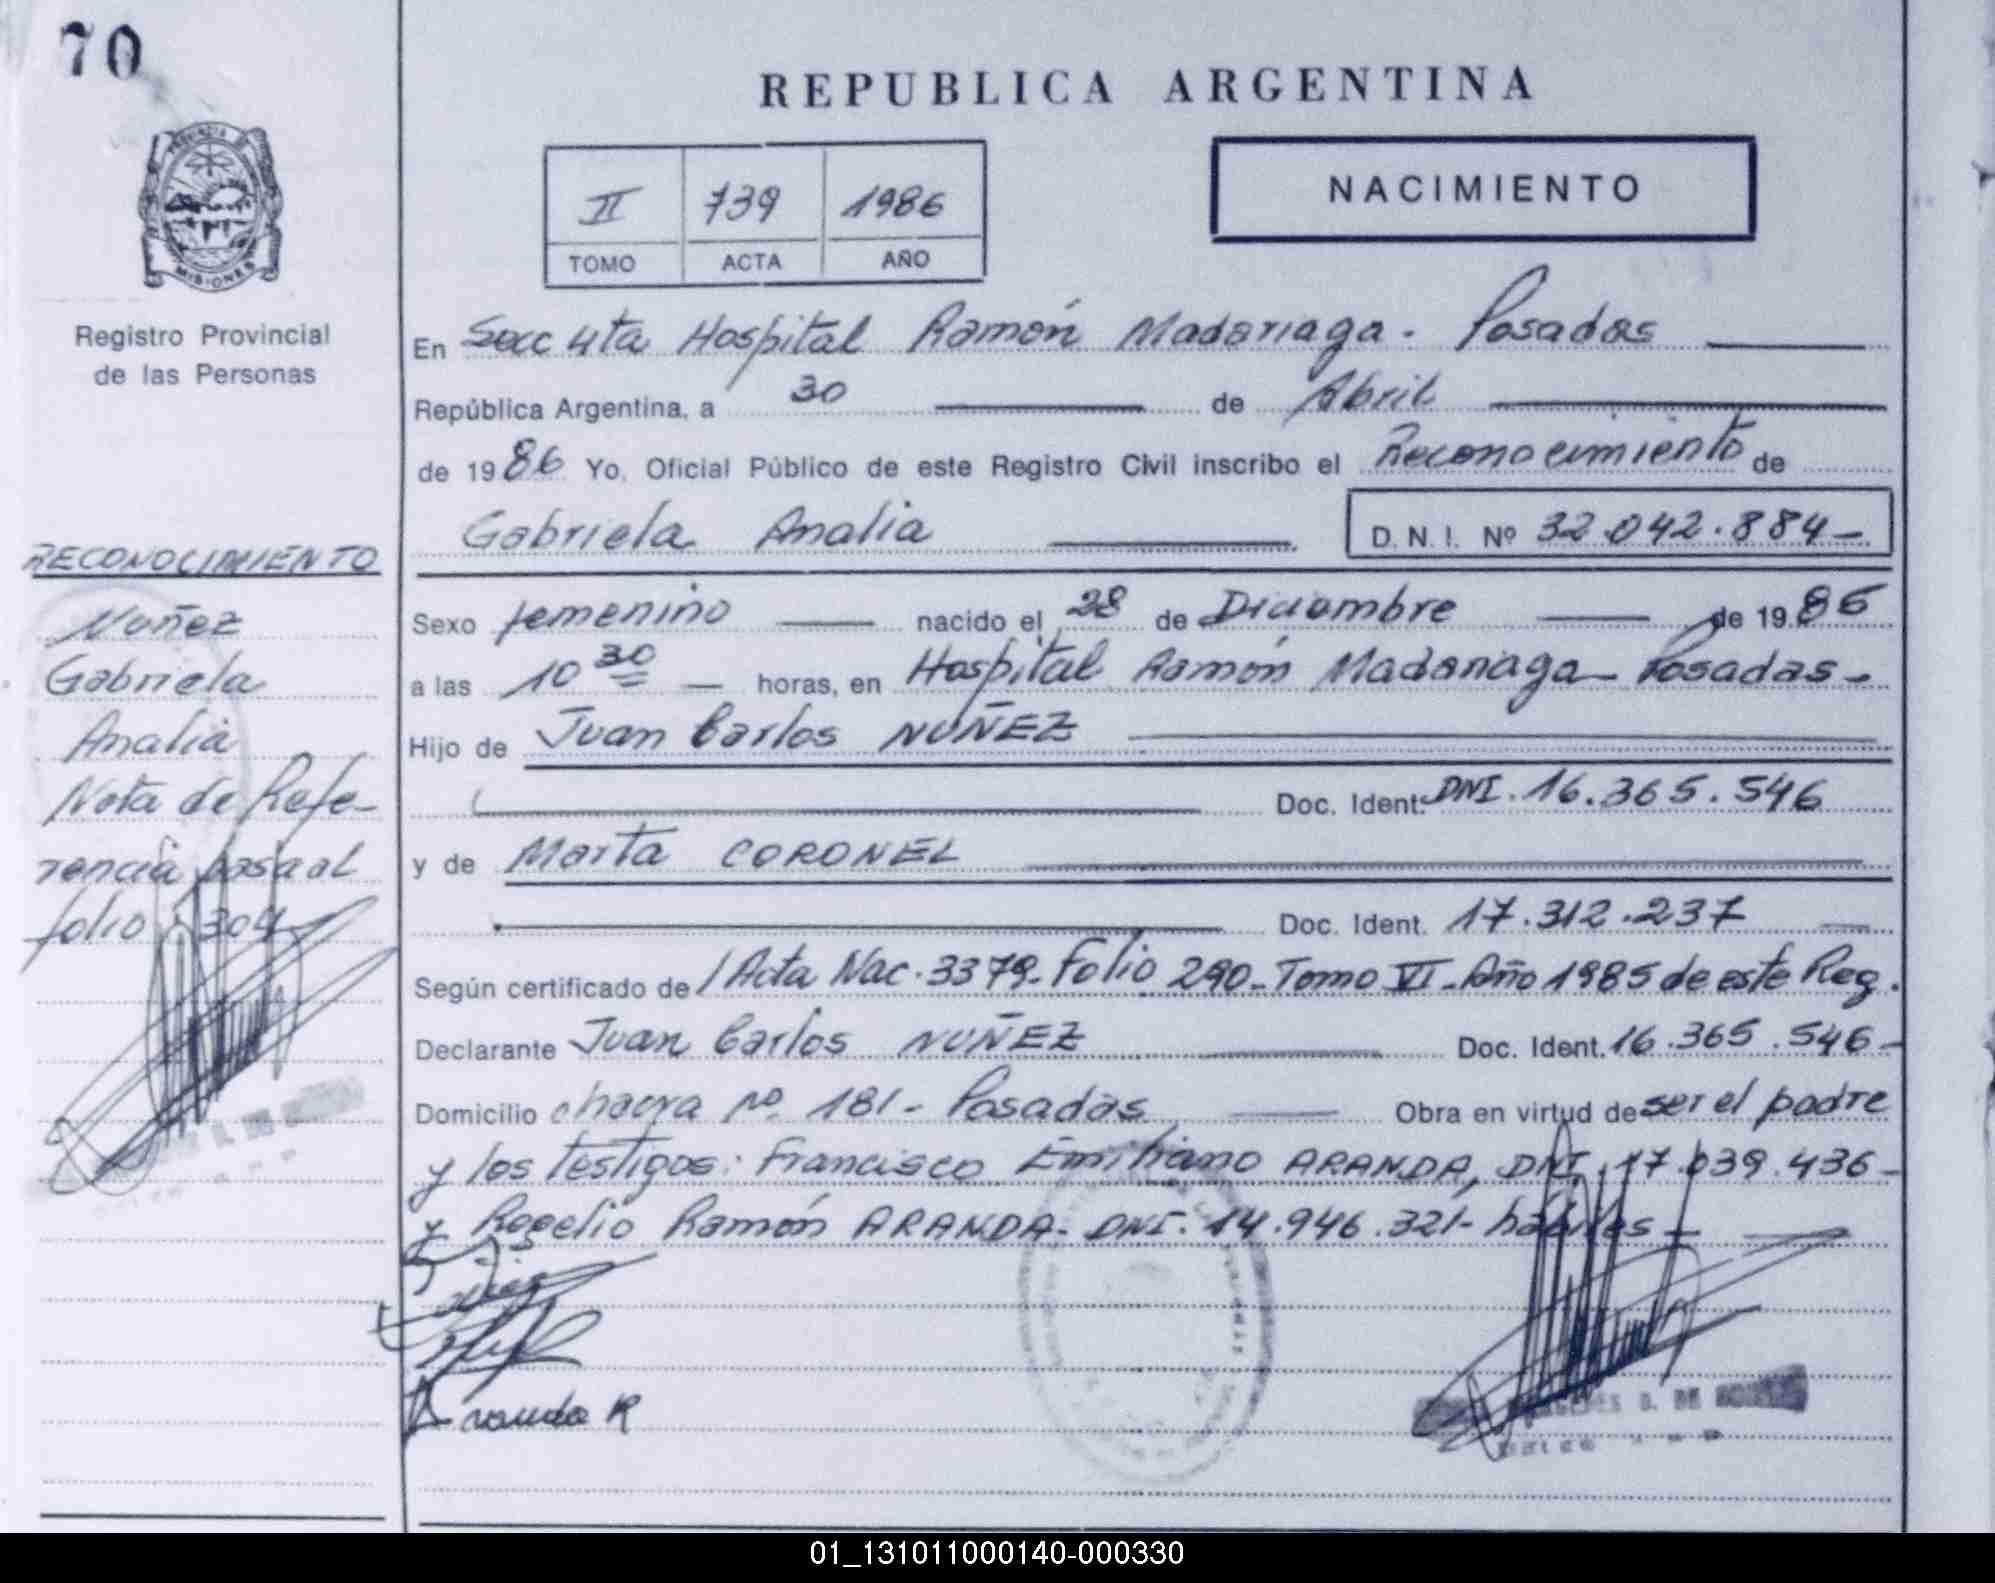 70
REPUBLICA ARGENTINA
PROVINCIA DE
MISIONES
Registro Provincial
de las Personas
II 739 1986
TOMO ACTA AÑO
NACIMIENTO
En Secc 4ta Hospital Ramón Madariaga - Posadas
República Argentina, a 30 de Abril
de 1986 Yo, Oficial Público de este Registro Civil inscribo el Reconocimiento de
Gabriela Analia D. N. I. Nº 32.042.884-
Sexo femenino nacido el 28 de Diciembre de 1986
a las 10 30 horas, en Hospital Ramón Madariaga - Posadas -
Hijo de Juan Carlos NUÑEZ
Doc. Ident. DNI. 16.365.546
y de Marta CORONEL
Doc. Ident. 17.312.237
Según certificado de Acta Nac. 3379- Folio 290- Tomo VI - Año 1985 de este Reg.
Declarante Juan Carlos NUÑEZ Doc. Ident. 16.365.546-
Domicilio chacra nº 181 - Posadas Obra en virtud de ser el padre
y los testigos: Francisco Emiliano ARANDA, DNI. 17.039.436-
y Rogelio Ramón ARANDA - DNI. 14.946.321- hábiles -
Aranda R
D. DE
RECONOCIMIENTO
Nuñez
Gabriela
Analia
Nota de Refe-
rencia pasa al
folio 304
01_131011000140-000330